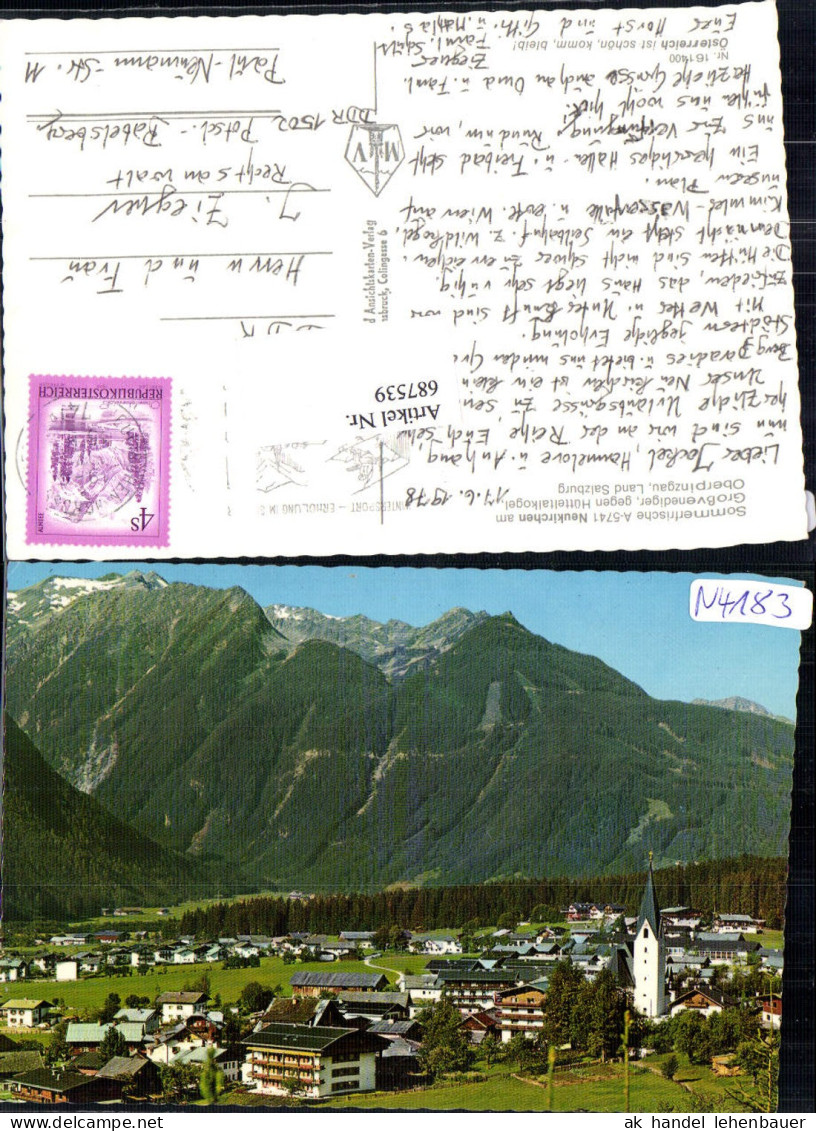 Sommerfrische A-5741 Neukirchen am
Großvenediger, gegen Hütteltalkogel,
Oberpinzgau, Land Salzburg
17.6.1978
Lieber Jockel, Hannelore u. Anhang,
nun sind wir an der Reihe Euch
herzliche Urlaubsgrüsse zu
Unser Neukirchen ist ein klein
Bergparadies u. bietet uns
Städtern jegliche Erholung.
Mit Wetter u. Unterkunft sind wir
zufrieden, das Haus liegt sehr ruhig.
Die Hütten sind nicht schwer zu erreichen.
Demnächst steht ein
Krimmler-Wasserfälle u. evtl. Wien auf
unserem Plan.
Ein herrliches Hallen- u. Freibad steht
uns zur Verfügung. Rundum, wir
fühlen uns wohl hier.
Herzliche Grüsse auch an Oma u. Faml.
Ziegner Faml. Schüts u. Mathias.
Euer Horst und Gith.
Nr. 161400
Österreich ist schön, komm, bleib!
MV
d Ansichtskarten-Verlag
nsbruck, Colingasse 6
WINTERSPORT – ERHOLUNG IM S
Artikel Nr.
687539
REPUBLIK ÖSTERREICH
ALMSEE
4S
DDR
Herrn und Frau
J. Ziegner
Rechtsanwalt
DDR 1502 Potsd.-Babelsberg
Paul-Neumann-Str. 11
N4183
ak handel lehenbauer